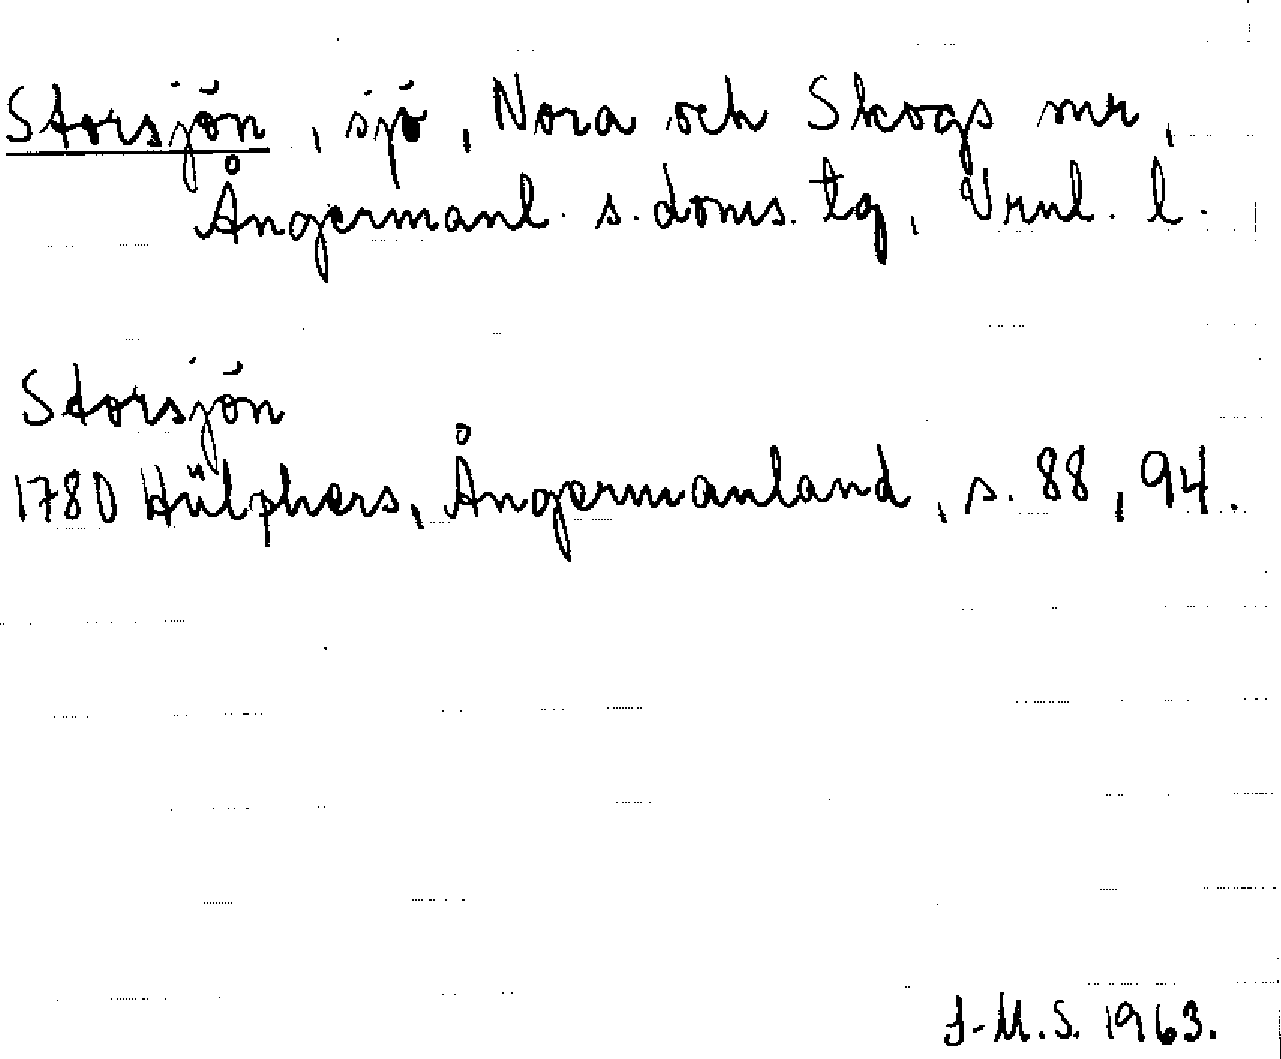 Storsjön, sjö, Nora och Skogs snr,
Ångermanl. s. doms. tg, Vrnl. l.
Storsjön
1780 Hülphers, Ångermanland, s. 88, 94.
J-M.S. 1963.